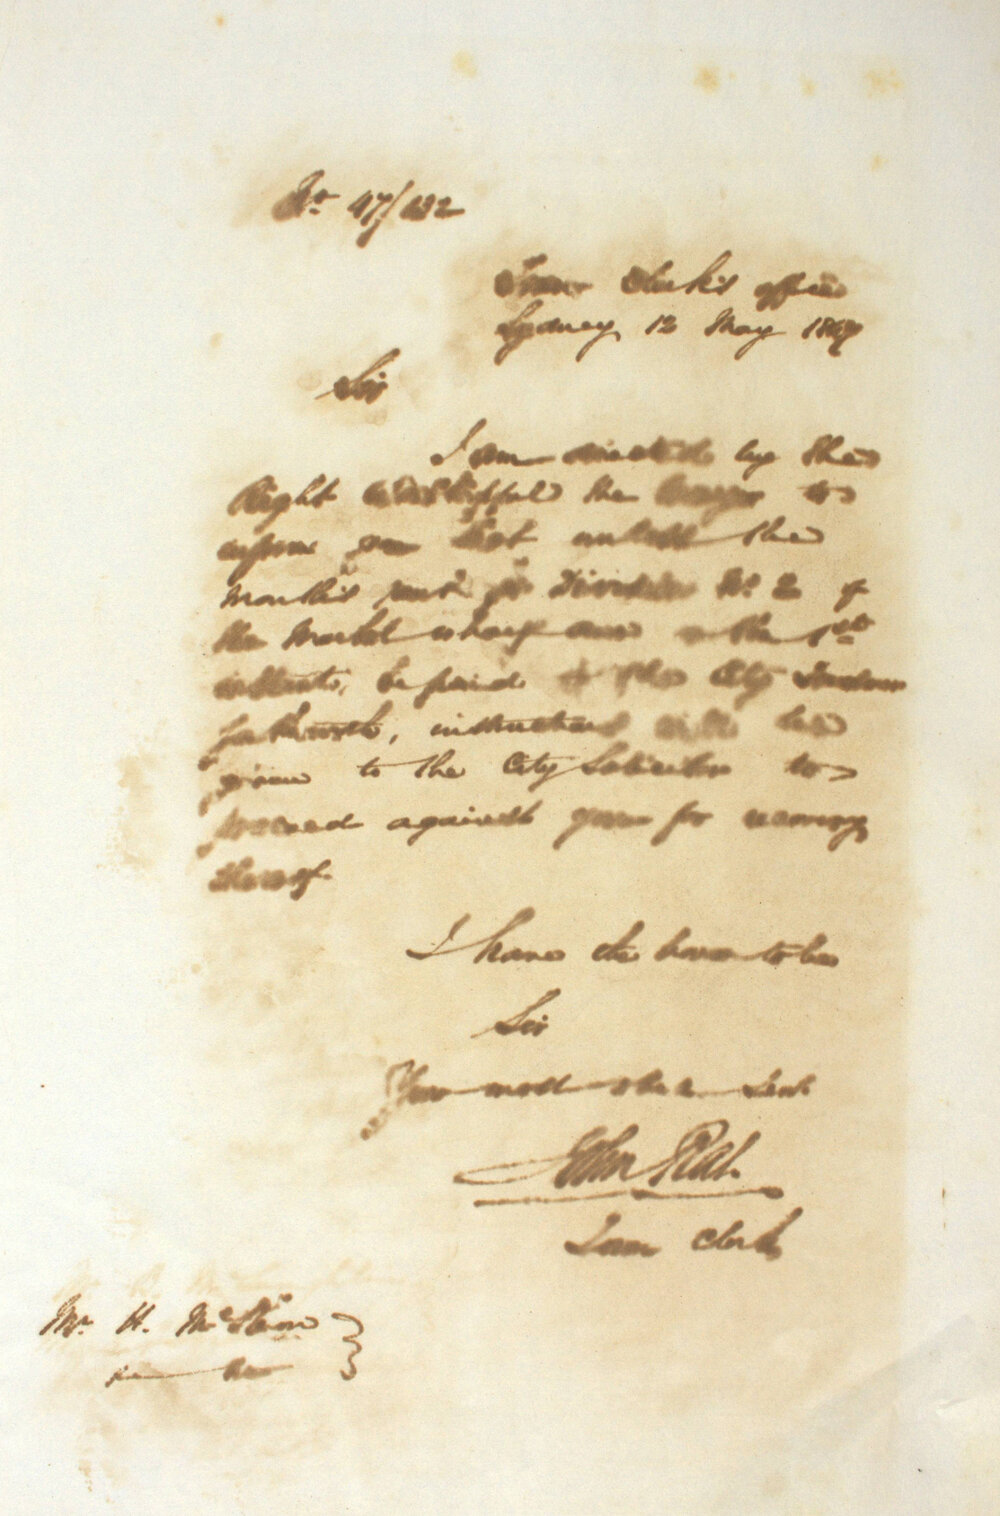 No. 47/132
Town Clerk's office
Sydney 12 May 1847
Sir
I am directed by the
Right Worshipful the Mayor to
inform you that unless the
Month's rent for Division No. 2 of
the Market wharf due on the 1st
instant, be paid to the City Treasurer
forthwith, instructions will be
given to the City Solicitor to
proceed against you for recovery
thereof.
I have the honor to be
Sir
Your most obed Servt
John Rae
Town Clerk
Mr. H.